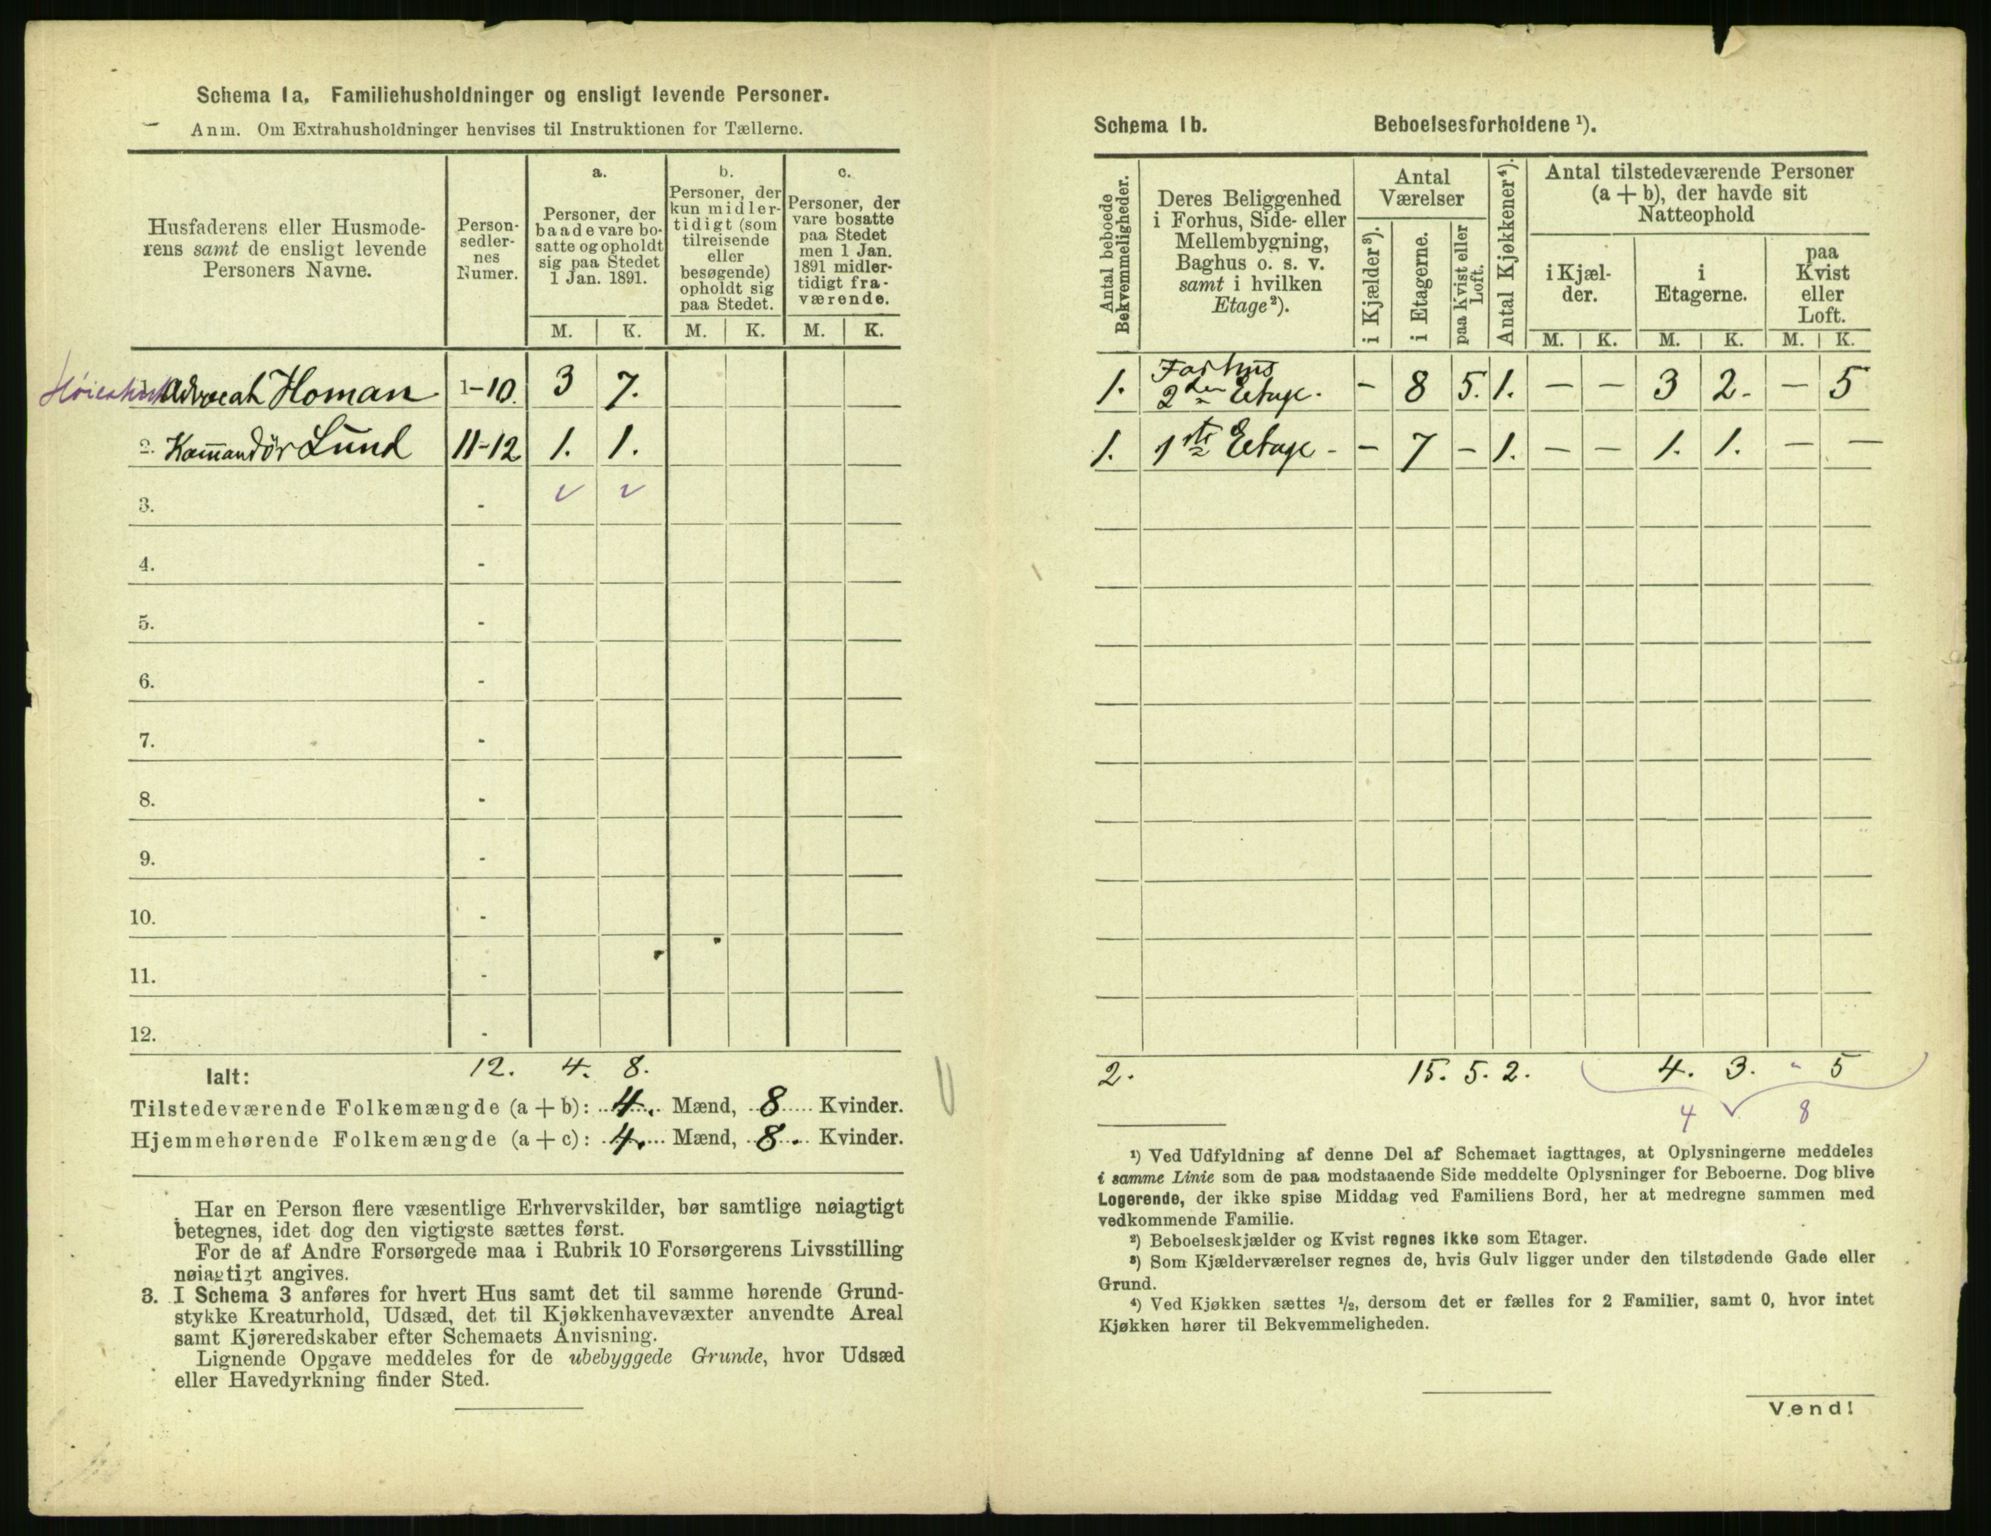 Schema 1a. Familiehusholdninger og ensligt levende Personer.
Anm. Om Extrahusholdninger henvises til Instruktionen for Tællerne.
Husfaderens eller Husmode-
rens samt de ensligt levende
Personers Navne.
Person-
sedler-
nes
Numer.
a.
Personer, der
baade vare bo-
satte og opholdt
sig paa Stedet
1 Jan. 1891.
b.
Personer, der
kun midler-
tidigt (som
tilreisende
eller
besøgende)
opholdt sig
paa Stedet.
c.
Personer, der
vare bosatte
paa Stedet
men 1 Jan.
1891 midler-
tidigt fra-
værende.
M. K. M. K. M. K.
Advocat Homan 1-10. 3 7.
2. Kommandör Lund 11-12 1. 1.
3. -
4. -
5. -
6. -
7. -
8. -
9. -
10. -
11. -
12. -
Ialt: 12. 4. 8.
Tilstedeværende Folkemængde (a + b): 4. Mænd, 8 Kvinder.
Hjemmehørende Folkemængde (a + c): 4. Mænd, 8. Kvinder.
Har en Person flere væsentlige Erhvervskilder, bør samtlige nøiagtigt
betegnes, idet dog den vigtigste sættes først.
For de af Andre Forsørgede maa i Rubrik 10 Forsørgerens Livsstilling
nøiagtigt angives.
3. I Schema 3 anføres for hvert Hus samt det til samme hørende Grund-
stykke Kreaturhold, Udsæd, det til Kjøkkenhavevæxter anvendte Areal
samt Kjøreredskaber efter Schemaets Anvisning.
Lignende Opgave meddeles for de ubebyggede Grunde, hvor Udsæd
eller Havedyrkning finder Sted.
Schema 1b. Beboelsesforholdene ¹).
Antal beboede
Bekvemmeligheder.
Deres Beliggenhed
i Forhus, Side- eller
Mellembygning,
Baghus o. s. v.
samt i hvilken
Etage²).
Antal
Værelser
i Kjælder³).
i Etagerne.
paa Kvist eller
Loft.
Antal Kjøkkener⁴).
Antal tilstedeværende Personer
(a + b), der havde sit
Natteophold
i Kjæl-
der.
i
Etagerne.
paa
Kvist
eller
Loft.
M. K. M. K. M. K.
Forhus
1. 2den Etage. - 8 5. 1. - - 3 2. - 5
1. 1ste Etage - - 7 - 1. - - 1. 1. - -
2. 15. 5. 2. 4. 3. - 5
4 8
¹) Ved Udfyldning af denne Del af Schemaet iagttages, at Oplysningerne meddeles
i samme Linie som de paa modstaaende Side meddelte Oplysninger for Beboerne. Dog blive
Logerende, der ikke spise Middag ved Familiens Bord, her at medregne sammen med
vedkommende Familie.
²) Beboelseskjælder og Kvist regnes ikke som Etager.
³) Som Kjælderværelser regnes de, hvis Gulv ligger under den tilstødende Gade eller
Grund.
⁴) Ved Kjøkken sættes ½, dersom det er fælles for 2 Familier, samt 0, hvor intet
Kjøkken hører til Bekvemmeligheden.
Vend!